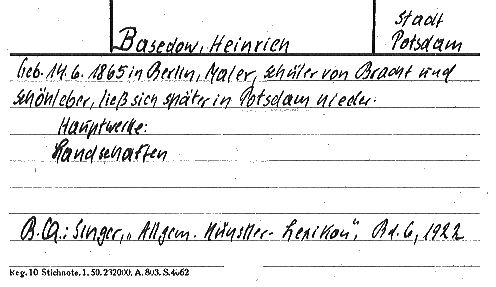 Basedow, Heinrich
Stadt
Potsdam
Geb. 14.6. 1865 in Berlin, Maler, Schüler von Bracht und
Schönleber, ließ sich später in Potsdam nieder.
Hauptwerke:
Landschaften
B.Q.: Singer, "Allgem. Künstler-Lexikon", Bd. 6, 1922
Reg. 10 Stichnote. 1. 50. 232000. A. 803. S. 4062